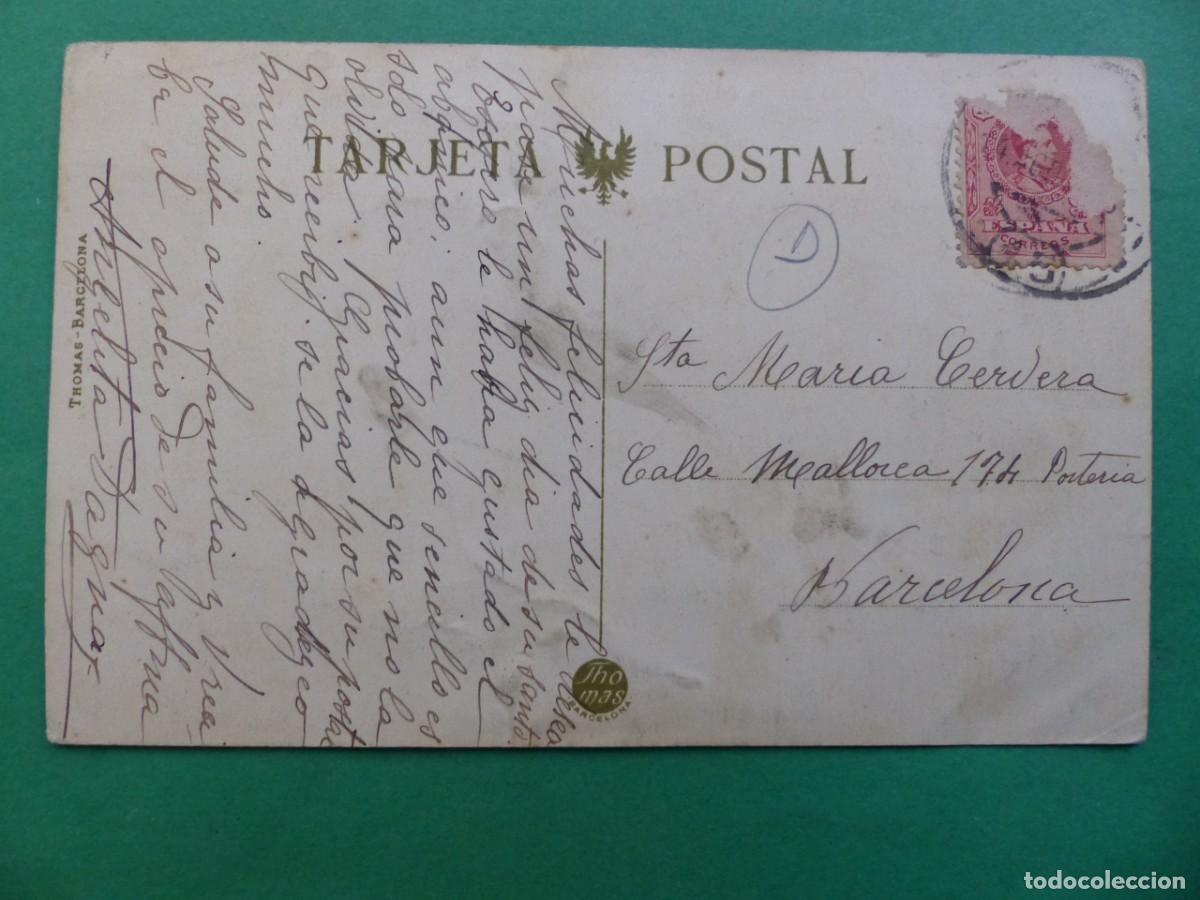 TARJETA POSTAL
D
ESPAÑA
CORREOS
Sta Maria Cervera
Calle Mallorca 174 Porteria
Barcelona
Muchas felicidades le desea
pase un feliz dia de su santo.
Espero le haba gustado el
abanico, aun que sencillo es
solo para probarle que no la
olvida. Gracias por su postal
que recibi. se la agradezco
mucho.
Salude a su familia y reci
ba el aprecio de su affma
Angelita Dagnar
THOMAS-BARCELONA
Tho
mas
BARCELONA
todocoleccion